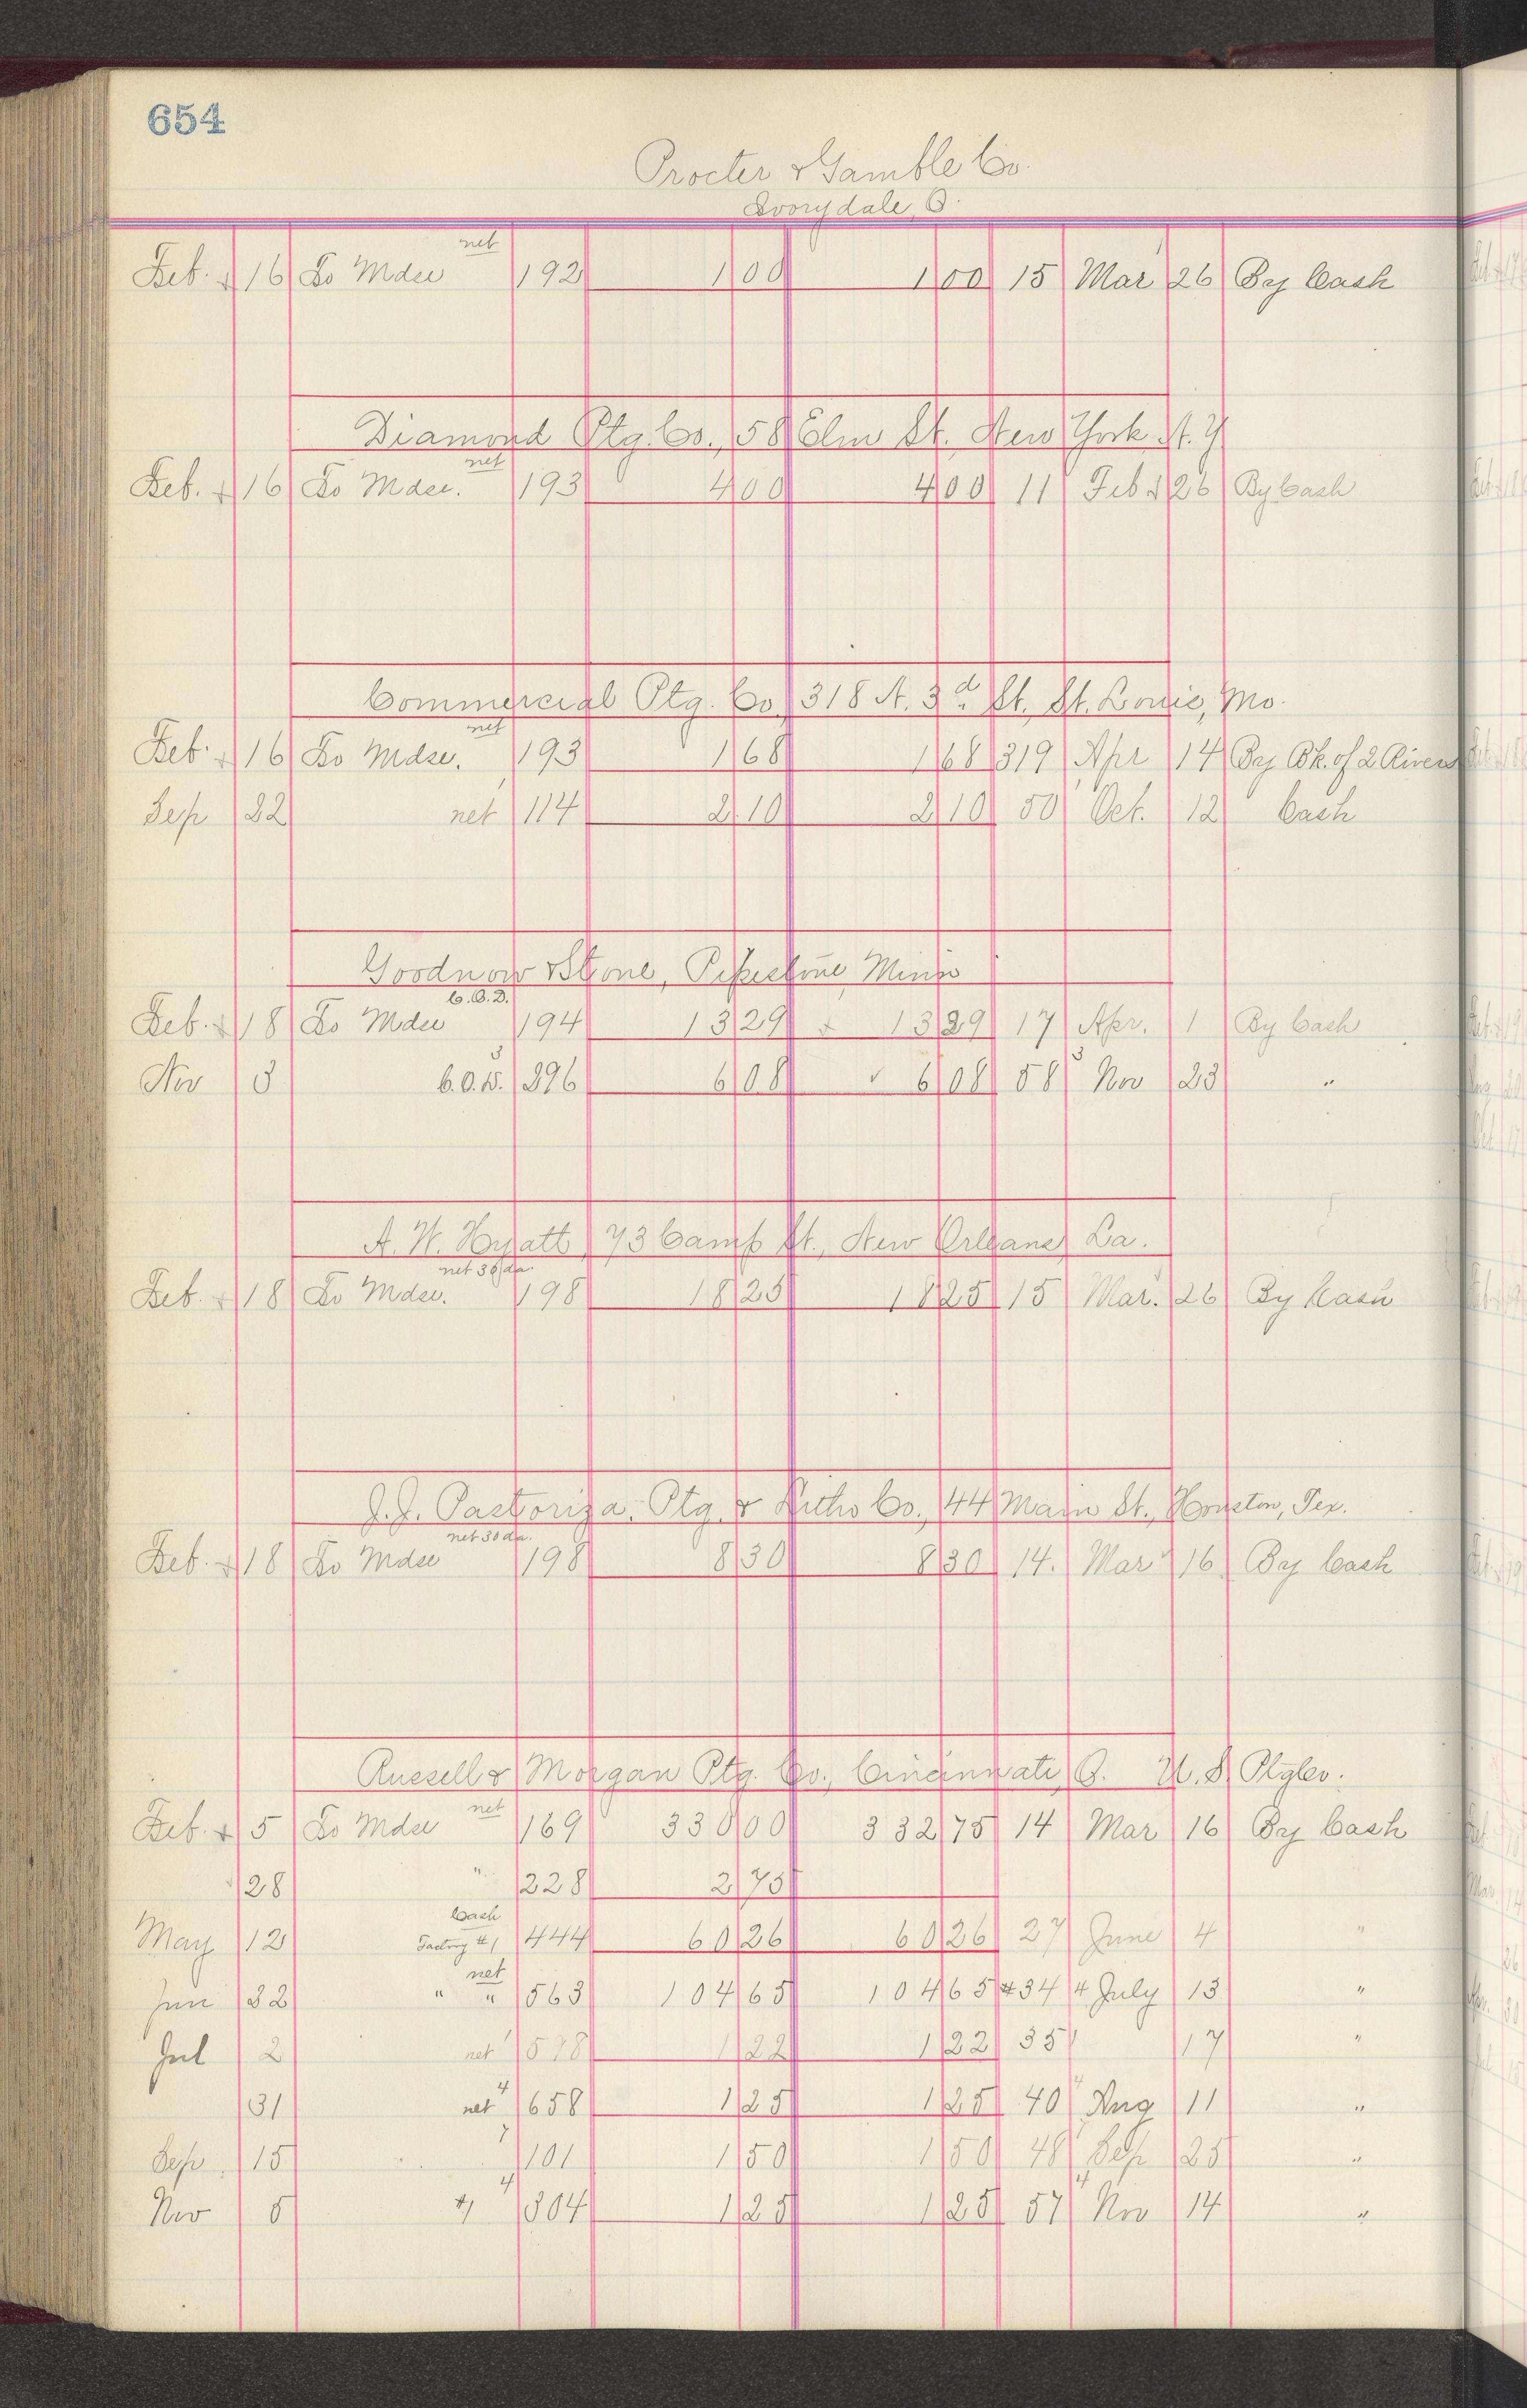 654
Procter & Gamble Co.
Ivorydale, O.
net
Feb. 16 To Mdse 192 1 00 1 00 15 Mar 26 By Cash
Diamond Ptg. Co., 58 Elm St. New York N. Y
net
Feb. 16 To Mdse. 193 4 00 4 00 11 Feb 26 By Cash
Commercial Ptg. Co 318 N. 3d St. St. Louis, Mo.
net
Feb. 16 To Mdse. 193 1 68 1 68 319 Apr 14 By Bk. of 2 Rivers
Sep 22 net 114 2 10 2 10 50 Oct. 12 Cash
Goodnow & Stone, Pipestone Minn
C.O.D.
Feb. 18 To Mdse 194 13 29 13 29 17 Apr. 1 By Cash
Nov 3 C.O.D. 296 6 08 ✓ 6 08 58 Nov 23 "
A. W. Hyatt 73 Camp St., New Orleans La.
net 30 da.
Feb. 18 To Mdse. 198 18 25 18 25 15 Mar. 26 By Cash
J. J. Pastoriza Ptg. & Litho Co., 44 Main St., Houston, Tex.
net 30 da.
Feb. 18 To Mdse 198 8 30 8 30 14. Mar 16 By Cash
Russell & Morgan Ptg. Co., Cincinnati, O. U. S. Ptg Co.
net
Feb. 5 To Mdse 169 330 00 332 75 14 Mar 16 By Cash
28 " 228 2 75
Cash
May 12 Factory #1 444 60 26 60 26 27 June 4 "
net
Jun 22 " " 563 104 65 104 65 #34 July 13 "
Jul 2 net 578 1 22 1 22 35 17 "
31 net 658 1 25 1 25 40 Aug 11 "
Sep. 15 101 1 50 1 50 48 Sep 25 "
Nov 5 #1 304 1 25 1 25 57 Nov 14 "